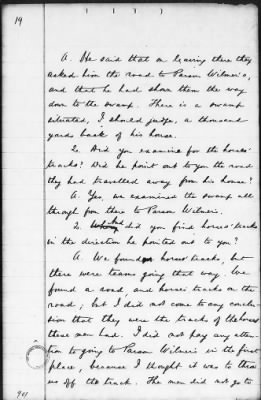 19
A. He said that on leaving there they
asked him the road to Parson Wilmer's,
and that he had shown them the way
down to the swamp. There is a swamp
situated, I should judge, a thousand
yards back of his house.
Q. Did you examine for the horses'
tracks? Did he point out to you the road
they had travelled away from his house?
A. Yes, we examined the swamp all
through from there to Parson Wilmer's.
Q. And did you find horses' tracks
in the direction he pointed out to you?
A. We found horses' tracks, but
there were teams going that way. We
found a road, and horses' tracks on the
road; but I did not come to any conclu-
sion that they were the tracks of the horses
these men had. I did not pay any atten-
tion to going to Parson Wilmer's in the first
place, because I thought it was to throw
us off the track. The men did not go to